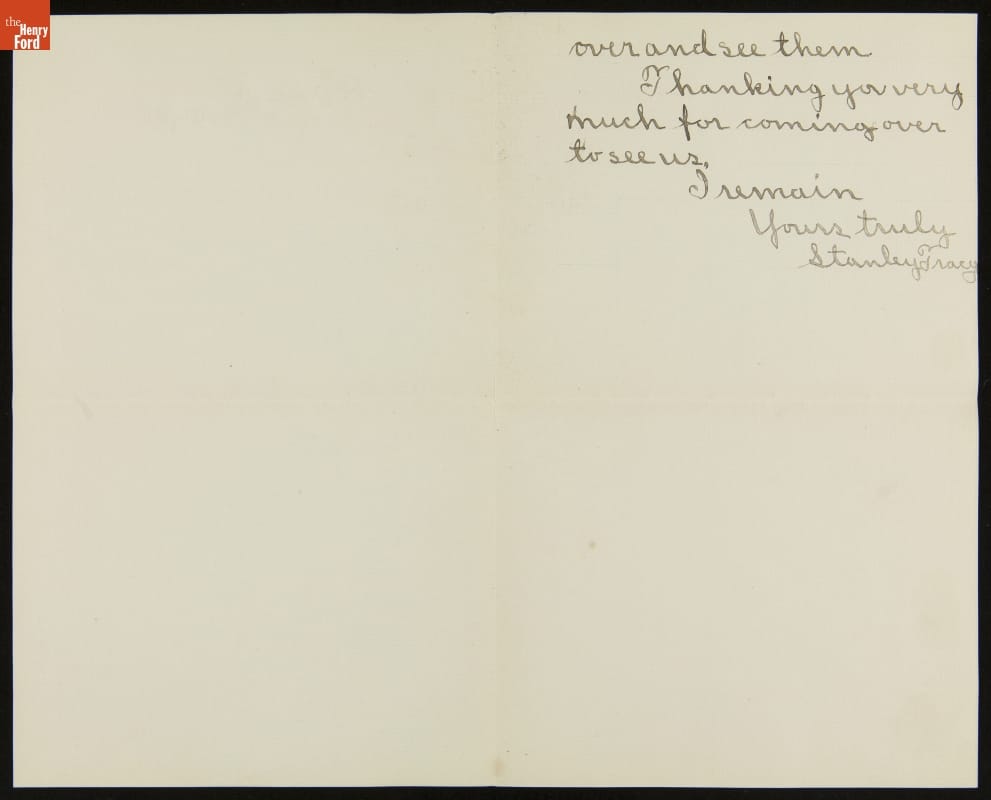 the
Henry
Ford
over and see them
Thanking you very
much for coming over
to see us.
I remain
Yours truly
Stanley Tracy